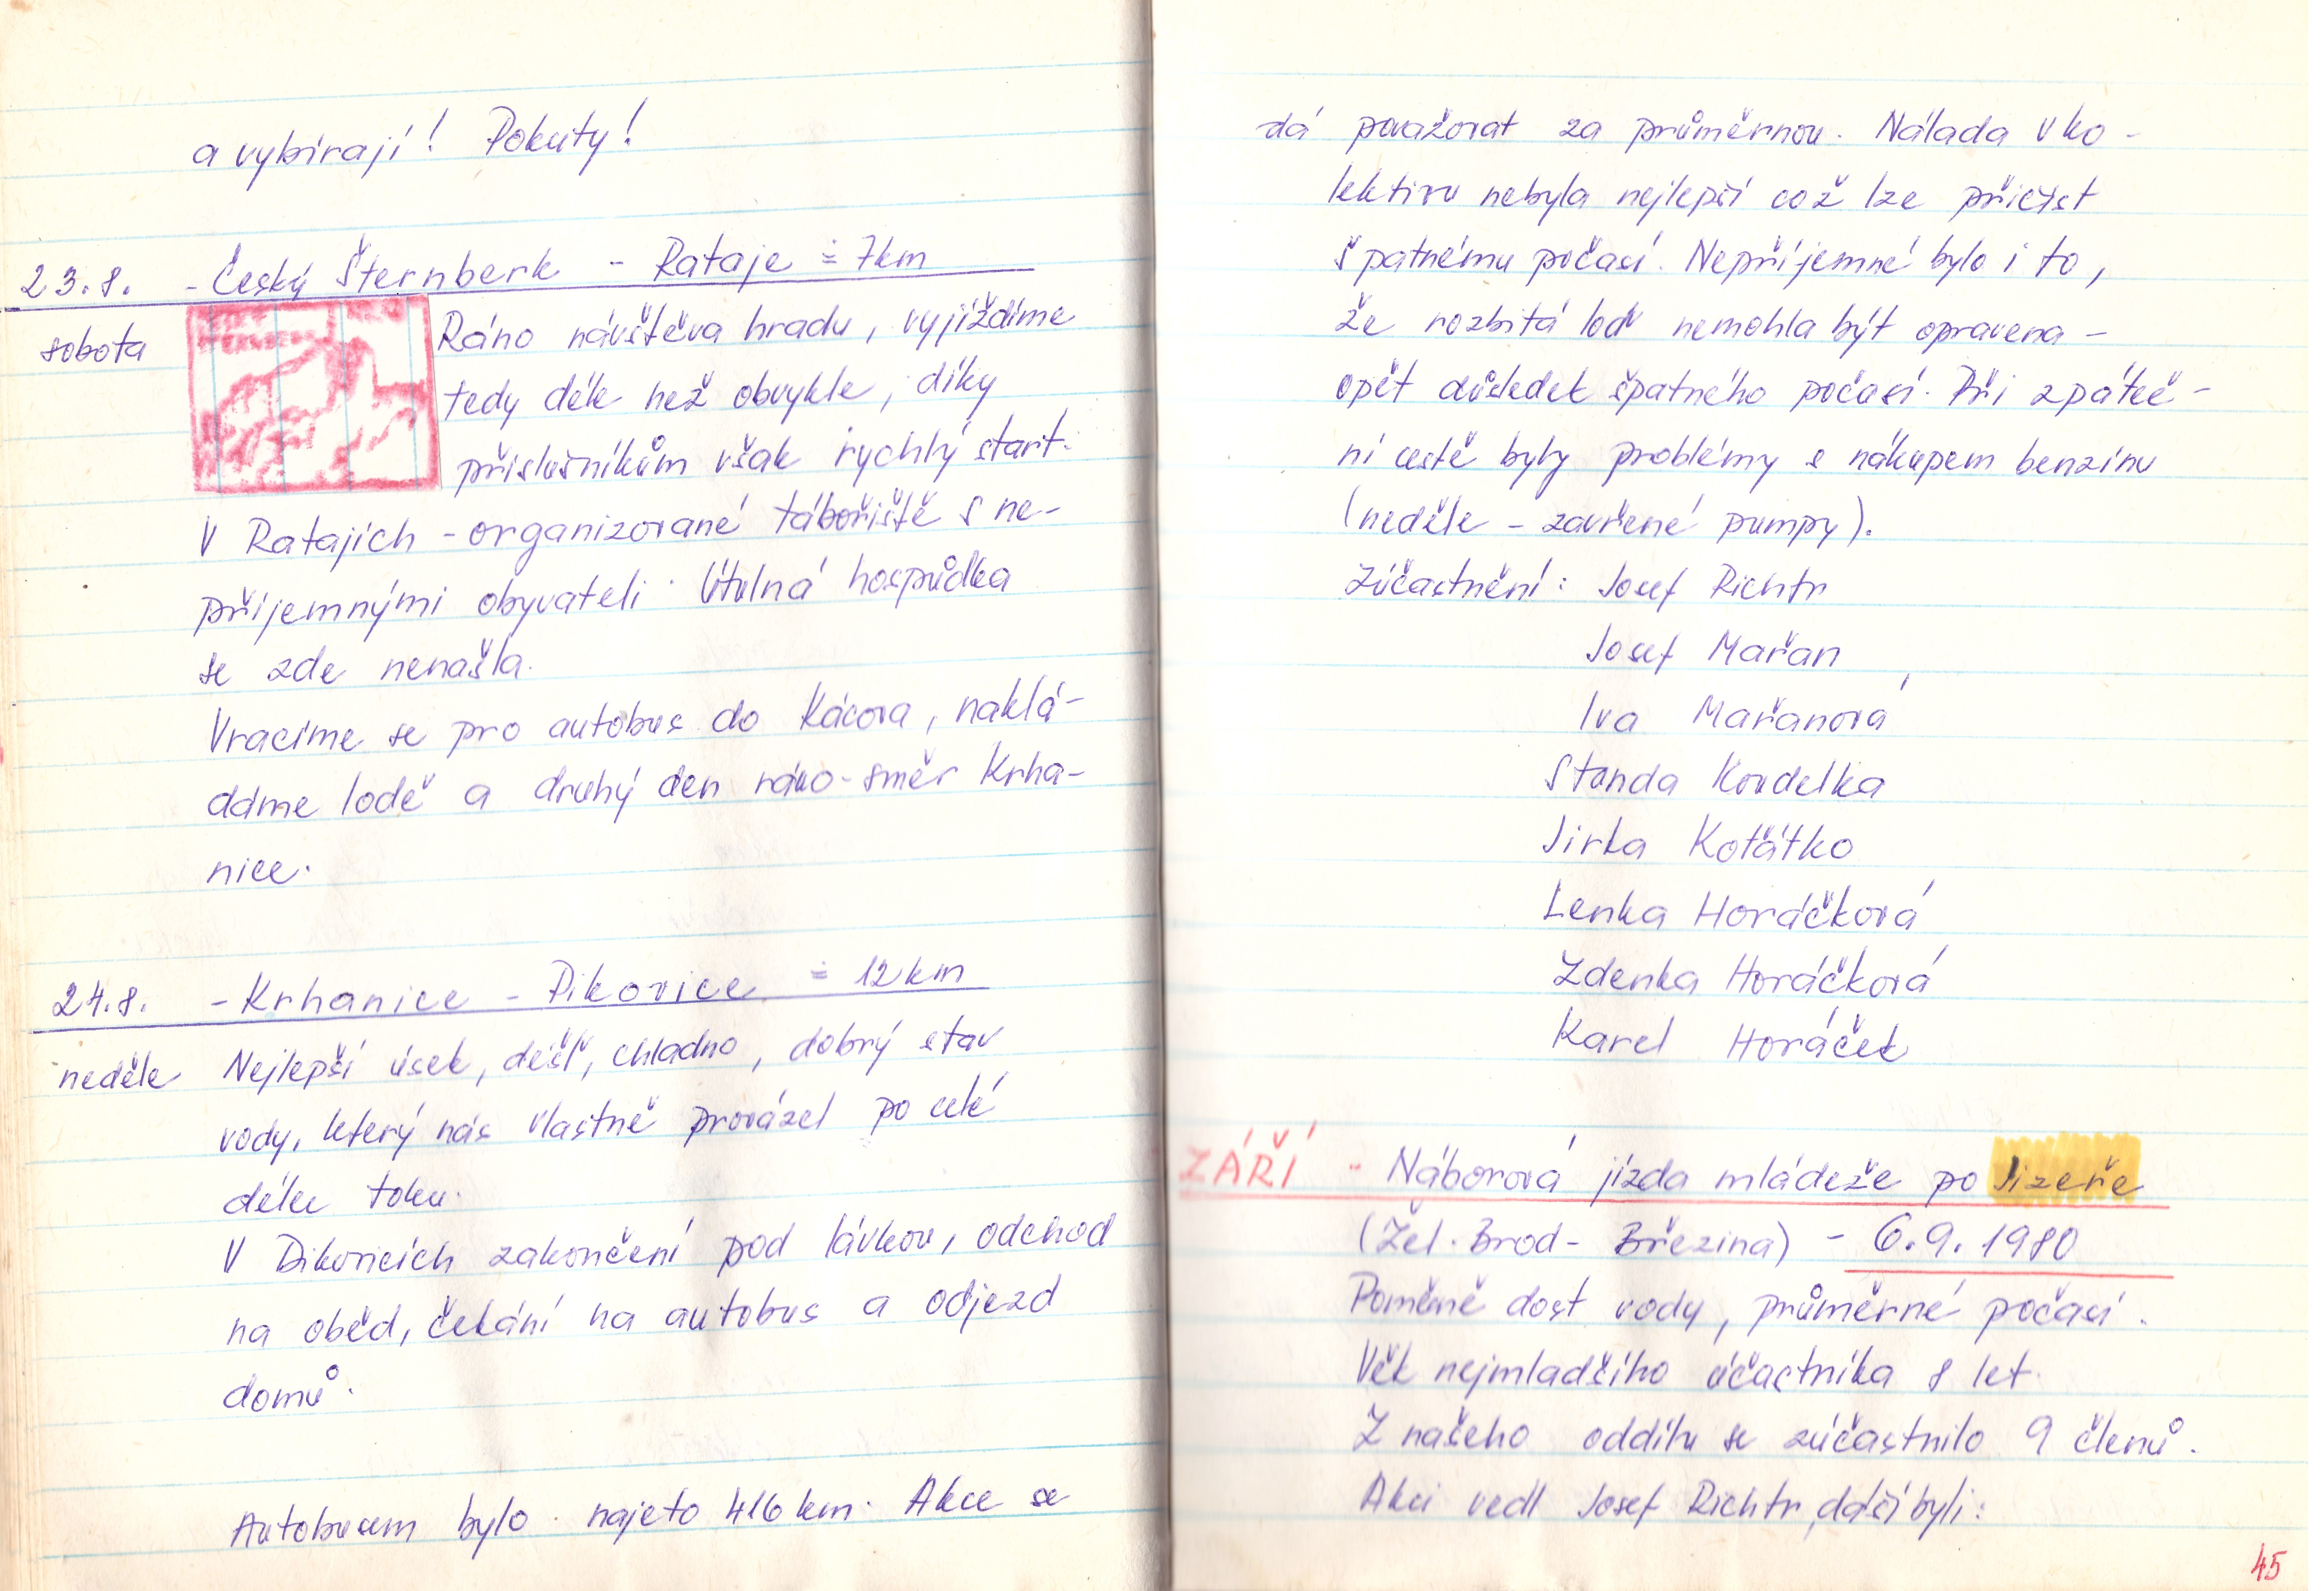 a vybírají! Pokuty!
23.8. - Český Šternberk - Rataje ≐ 7km
sobota
Ráno návštěva hradu, vyjíždíme
tedy déle než obvykle, díky
příslušníkům však rychlý start.
V Ratajích - organizované tábořiště s ne-
příjemnými obyvateli. Útulná hospůdka
se zde nenašla.
Vracíme se pro autobus do Kácova, naklá-
dáme lodě a druhý den ráno - směr Krha-
nice.
24.8. - Krhanice - Pikovice ≐ 12km
neděle Nejlepší úsek, déšť, chladno, dobrý stav
vody, který nás vlastně provázel po celé
délce toku.
V Pikovicích zakončení pod lávkou, odchod
na oběd, čekání na autobus a odjezd
domů.
Autobusem bylo najeto 416 km. Akce se
dá považovat za průměrnou. Nálada v ko-
lektivu nebyla nejlepší což lze přičíst
špatnému počasí. Nepříjemné bylo i to,
že rozbitá loď nemohla být opravena -
opět důsledek špatného počasí. Při zpáteč-
ní cestě byly problémy s nákupem benzínu
(neděle - zavřené pumpy).
Zúčastnění: Josef Richtr
Josef Mařan
Iva Mařanová
Standa Koudelka
Jirka Koťátko
Lenka Horáčková
Zdenka Horáčková
Karel Horáček
ZÁŘÍ - Náborová jízda mládeže po Jizeře
(Žel. Brod - Březina) - 6.9.1980
Poměrně dost vody, průměrné počasí.
Věk nejmladšího účastníka 8 let.
Z našeho oddílu se zúčastnilo 9 členů.
Akci vedl Josef Richtr, další byli:
45